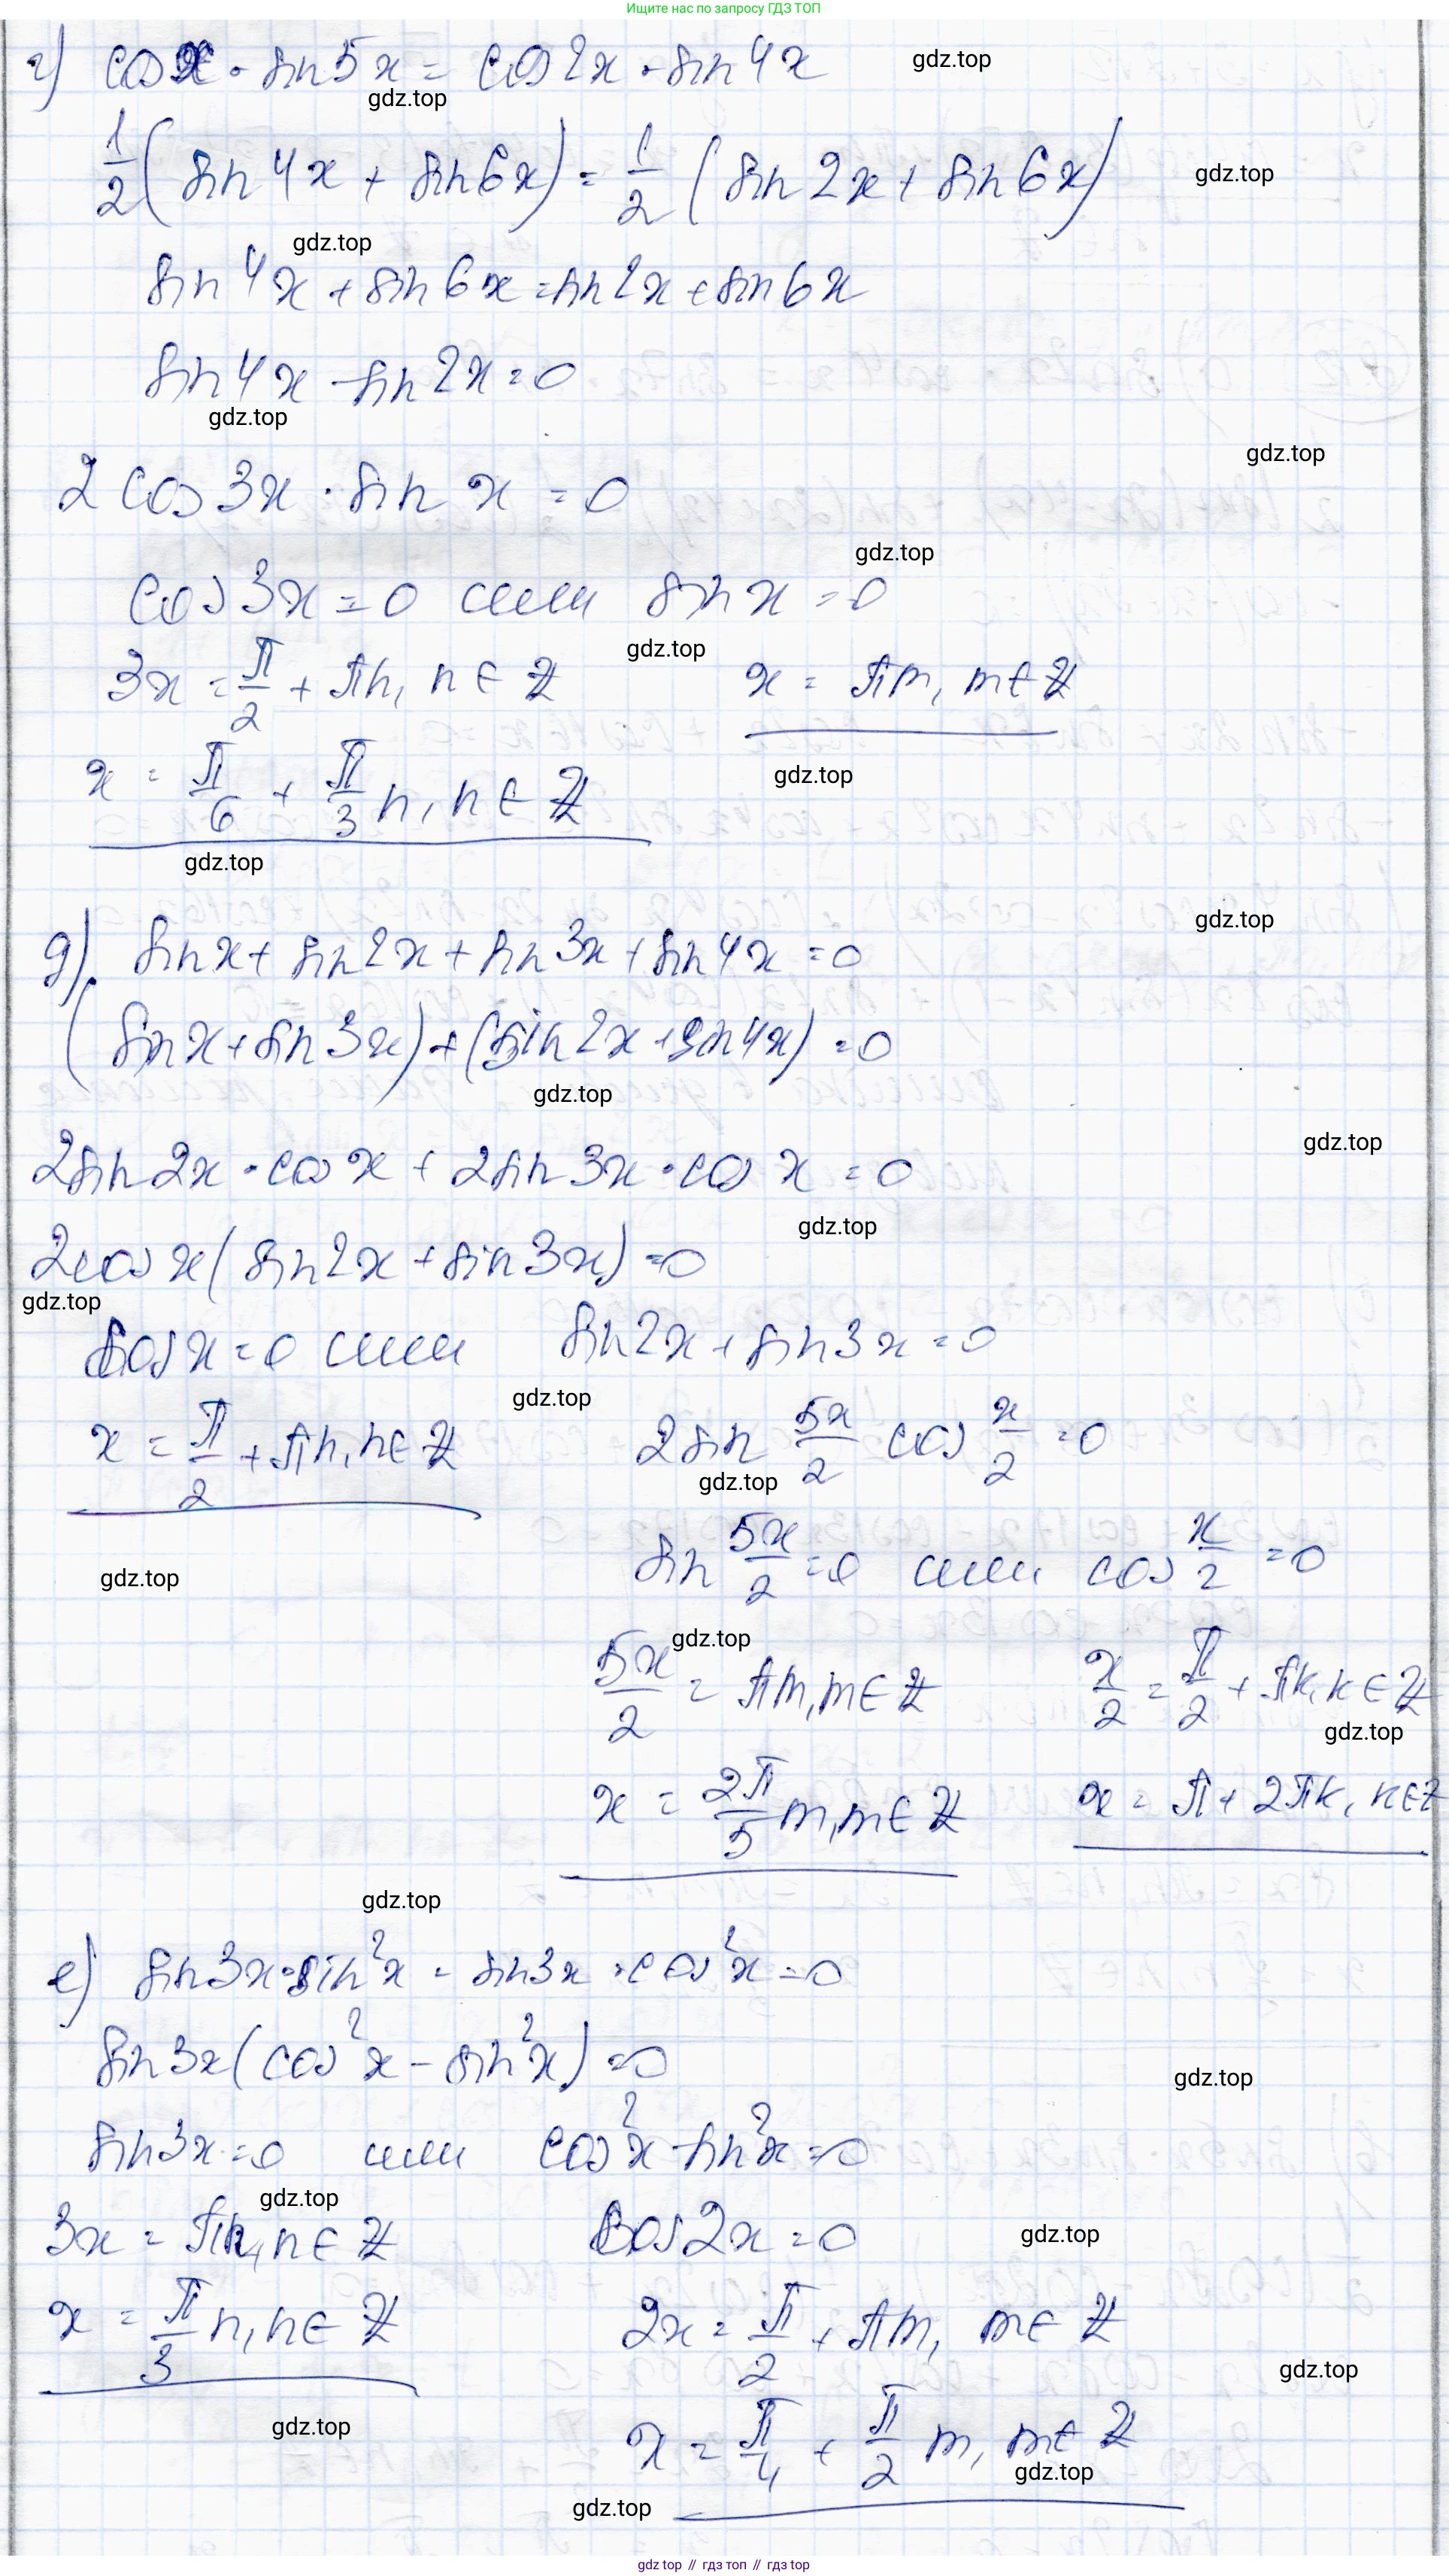 Ищите нас по запросу ГДЗ ТОП
г) cos x · sin 5x = cos 2x · sin 4x
gdz.top
gdz.top
1/2 (sin 4x + sin 6x) = 1/2 (sin 2x + sin 6x)
gdz.top
gdz.top
sin 4x + sin 6x = sin 2x + sin 6x
sin 4x - sin 2x = 0
gdz.top
gdz.top
2 cos 3x · sin x = 0
gdz.top
cos 3x = 0 или sin x = 0
gdz.top
3x = π/2 + πn, n ∈ Z x = πm, m ∈ Z
gdz.top
x = π/6 + π/3 n, n ∈ Z
gdz.top
gdz.top
д) sin x + sin 2x + sin 3x + sin 4x = 0
(sin x + sin 3x) + (sin 2x + sin 4x) = 0
gdz.top
gdz.top
2 sin 2x · cos x + 2 sin 3x · cos x = 0
gdz.top
2 cos x (sin 2x + sin 3x) = 0
gdz.top
cos x = 0 или sin 2x + sin 3x = 0
gdz.top
x = π/2 + πn, n ∈ Z 2 sin 5x/2 cos x/2 = 0
gdz.top
gdz.top
sin 5x/2 = 0 или cos x/2 = 0
gdz.top
5x/2 = πm, m ∈ Z x/2 = π/2 + πk, k ∈ Z
gdz.top
x = 2π/5 m, m ∈ Z x = π + 2πk, k ∈ Z
gdz.top
е) sin 3x · sin²x - sin 3x · cos²x = 0
sin 3x (cos²x - sin²x) = 0
gdz.top
sin 3x = 0 или cos²x - sin²x = 0
gdz.top
3x = πn, n ∈ Z cos 2x = 0
gdz.top
x = π/3 n, n ∈ Z 2x = π/2 + πm, m ∈ Z
gdz.top
gdz.top
x = π/4 + π/2 m, m ∈ Z
gdz.top
gdz.top
gdz top // гдз топ // гдз top